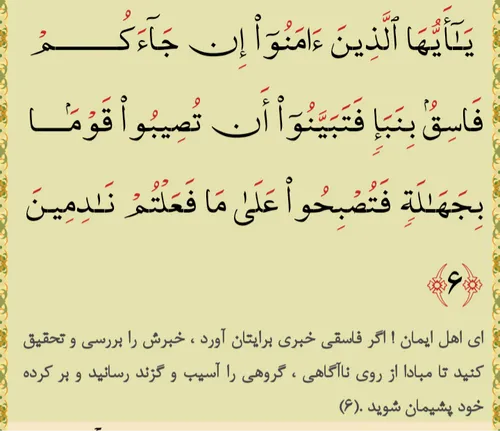 يَـٰٓأَيُّهَا ٱلَّذِينَ ءَامَنُوٓا۟ إِن جَآءَكُـــمْ
فَاسِقٌۢ بِنَبَإٍ فَتَبَيَّنُوٓا۟ أَن تُصِيبُوا۟ قَوْمًۢـــا
بِجَهَـٰلَةٍ فَتُصْبِحُوا۟ عَلَىٰ مَا فَعَلْتُمْ نَـٰدِمِينَ
﴿۶﴾
ای اهل ایمان ! اگر فاسقی خبری برایتان آورد ، خبرش را بررسی و تحقیق
کنید تا مبادا از روی ناآگاهی ، گروهی را آسیب و گزند رسانید و بر کرده
خود پشیمان شوید .(۶)